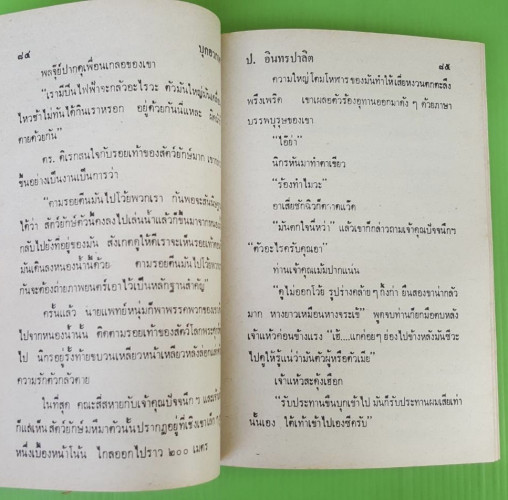 ๘๔
พลจุ๊ย์ปากดุเพื่อนเกลอของเขา
"เรามีปืนไฟฟ้าจะกลัวอะไรวะ ตัวมันใหญ่
ไหวช้าไม่ทันได้กินเราหรอก อยู่ด้วยกันนี่แหละ
ตายด้วยกัน"
ดร. ดิเรกสนใจกับรอยเท้าของสัตว์ยักษ์มาก
ขึ้นอย่างเป็นงานเป็นการว่า
"ตามรอยตีนมันไปโว้ยพวกเรา กันพอจะ
ได้ว่า สัตว์ยักษ์ตัวนี้คงลงไปเล่นน้ำแล้วก็ขึ้นมาจาก
กลับไปยังที่อยู่ของมัน สังเกตดูให้ดีเราจะเห็นรอยเท้า
มันเดินลงหนองน้ำนี้ด้วย ตามรอยตีนมันไปโว้ย
กันจะต้องถ่ายภาพยนตร์เอาไว้เป็นหลักฐานสำคัญ"
ครั้นแล้ว นายแพทย์หนุ่มก็พาพรรคพวกของเขา
ไปจากหนองน้ำนั้น ติดตามรอยเท้าของสัตว์โลก
ไป นิกรอยู่รั้งท้ายขบวนเหลียวหน้าเหลียวหลัง
ความรักตัวกลัวตาย
ในที่สุด คณะสี่สหายกับเจ้าคุณปัจจนึก ฯ
ก็แลเห็นสัตว์ยักษ์มหึมาตัวนั้นปรากฏอยู่ที่เชิงเขา
หนึ่งเบื้องหน้าโน้น ไกลออกไปราว ๒๐๐ เมตร
ป. อินทรปาลิต
๘๕
ความใหญ่โตมโหฬารของมันทำให้เสี่ยหงวนตกตะลึง
พรึงเพริด เขาเผลอตัวร้องอุทานออกมาดัง ๆ ด้วยภาษา
บรรพบุรุษของเขา
"ไอ๊ย่า"
นิกรหันมาทำตาเขียว
"ร้องทำไมวะ"
อาเสี่ยชักฉิวก็ตวาดแว๊ด
"มันตกใจนี่หว่า" แล้วเขาก็กล่าวถามเจ้าคุณปัจจนึก ฯ
"ตัวอะไรครับคุณอา"
ท่านเจ้าคุณเม้มปากแน่น
"ดูไม่ออกโว้ย รูปร่างคล้าย ๆ กิ้งก่า ยืนสองขาน่ากลัว
มาก หางยาวเหมือนหางจระเข้" พูดจบท่านก็ยกมือตบหลัง
เจ้าแห้วค่อนข้างแรง "เฮ้....แกค่อยๆ ย่องไปข้างหลังมันซีวะ
ไปดูให้รู้แน่ว่ามันตัวผู้หรือตัวเมีย"
เจ้าแห้วสะดุ้งเฮือก
"รับประทานขืนบุกเข้าไป มันก็รับประทานผมเสียเท่า
นั้นเอง ใต้เท้าเข้าไปเองซีครับ"